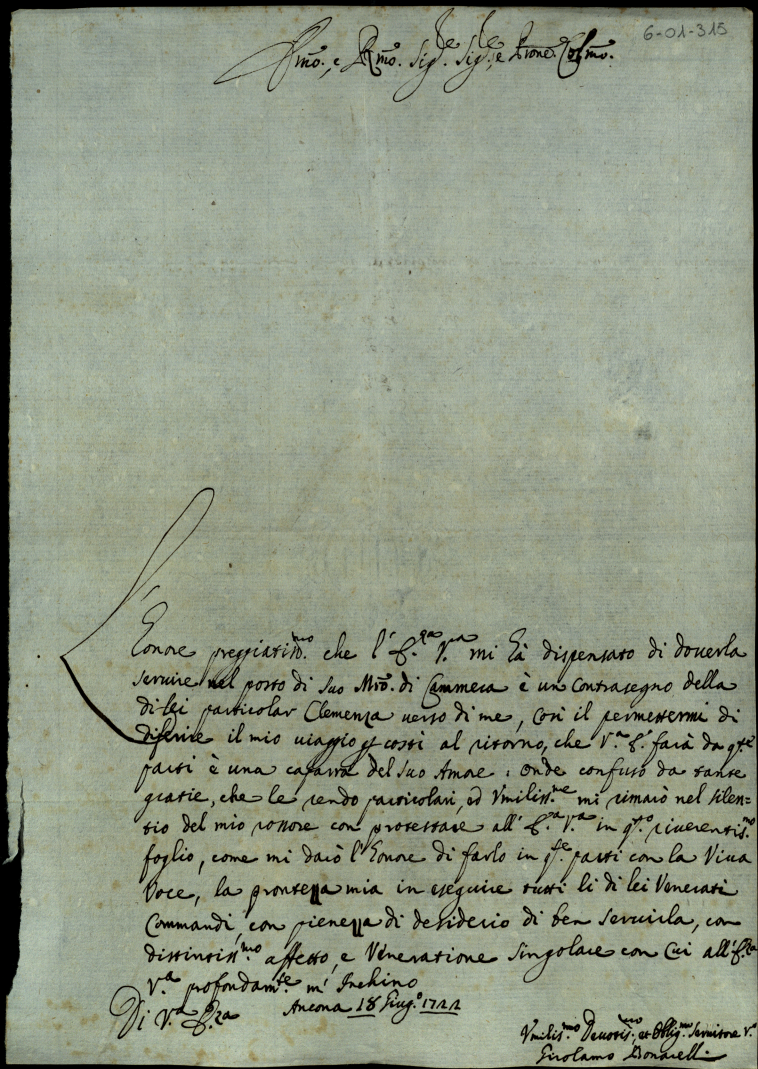 6-01-315
Emo., e Rmo. Sig.re Sig.re, e Prone. Colmo.
L'
honore preggiatiss.mo che l'E.za V.ra mi hà dispensato di douerla
seruire nel posto di suo Mro. di Cammera è un Contrasegno della
di lei particolar Clemenza uerso di me, Così il permettermi di
diferire il mio uiaggio costì al ritorno, che V.a E. farà da q.te
parti è una caparra del suo Amore: onde confuso da tante
gratie, che le rendo particolari, ed Vmiliss.me mi rimarò nel silen-
tio del mio rossore con protestare all'E.za V.ra in q.to riuerentis.mo
foglio, come mi darò l'honore di farlo in q.te parti con la Viua
Voce, la prontezza mia in eseguire tutti li di lei Venerati
Commandi, con pienezza di desiderio di ben seruirla, con
distintiss.mo affetto, e Veneratione singolare con Cui all'E.za
V.a profondam.te m'Inchino
Di V.a E.za Ancona 18 Giug.o 1722
Vmilis.mo Deuotis.mo, et Oblig.mo Seruitore V.o
Girolamo Bonarelli